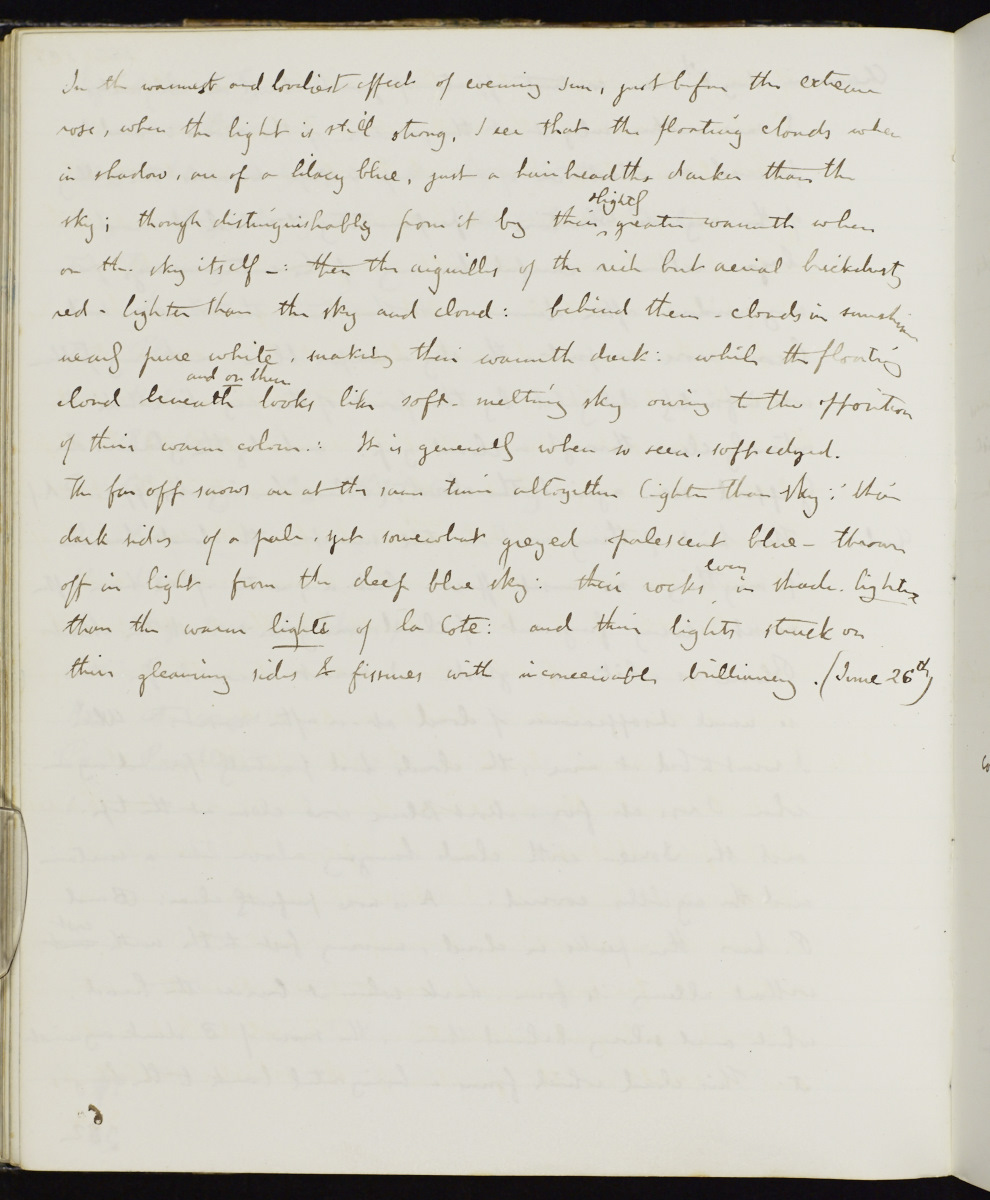 In the warmest and loveliest effects of evening sun, just before the extreme
rose, when the light is still strong, I see that the floating clouds when
in shadow, are of a lilacy blue, just a hairbreadths darker than the
sky; though distinguishably from it by their slightly greater warmth when
on the sky itself -: then the aiguilles of the rich but aerial brickdusty
red - lighter than the sky and cloud: behind them - clouds in sunshine
nearly pure white, making their warmth dark: while the floating
cloud beneath and on them looks like soft - melting sky owing to the opposition
of their warm colour.: It is generally when so seen, soft edged.
The far off snows are at the same time altogether lighter than sky; their
dark sides of a pale, yet somewhat greyed opalescent blue - thrown
off in light from the deep blue sky: their rocks, even in shade, lighter
than the warm lights of la Cote: and their lights struck on
their gleaming sides & fissures with inconceivable brilliancy. (June 26th)